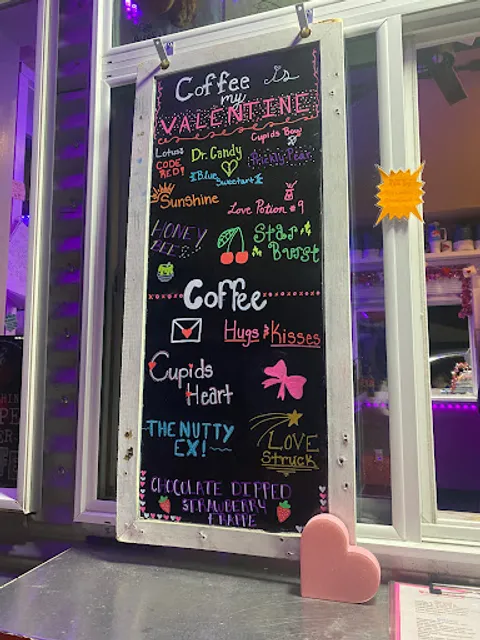 Coffee is
my
VALENTINE
Cupids Bow
Lotus:
CODE
RED!
Dr. Candy
Prickly Pear
Blue
Sweetart
Sunshine
Love Potion #9
HONEY
BEES!
Star
Burst
Coffee
Hugs & Kisses
Cupids
Heart
THE NUTTY
EX!
LOVE
Struck
CHOCOLATE DIPPED
STRAWBERRY
FRAPPE